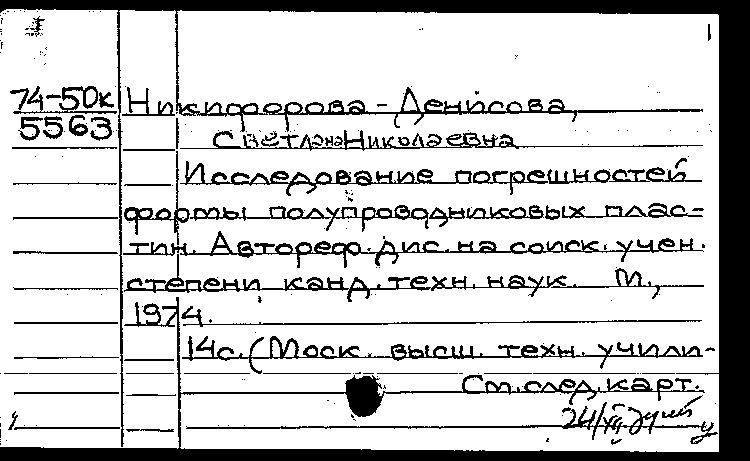 1
74-50к Никифорова-Денисова,
5563 Светлана Николаевна
Исследование погрешностей
формы полупроводниковых плас-
тин. Автореф. дис. на соиск. учен.
степени канд. техн. наук. М.,
1974.
14с. (Моск. высш. техн. учили-
См. след. карт.
24/XII